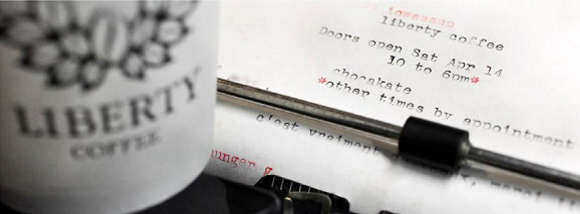 LIBERTY
COFFEE
towessup
liberty coffee
Doors open Sat Apr 14
10 to 6pm*
chocakate
*other times by appointment
c'est vraiment
unger